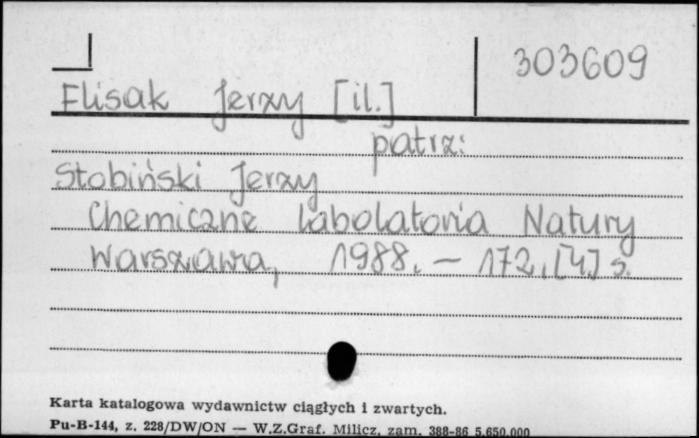 303609
Elisak Jerzy [il.]
patrz:
Stobiński Jerzy
Chemiczne labolatoria Natury
Warszawa, 1988. – 172, [4] s.
Karta katalogowa wydawnictw ciągłych i zwartych.
Pu-B-144, z. 228/DW/ON — W.Z.Graf. Milicz, zam. 388-86 5.650.000